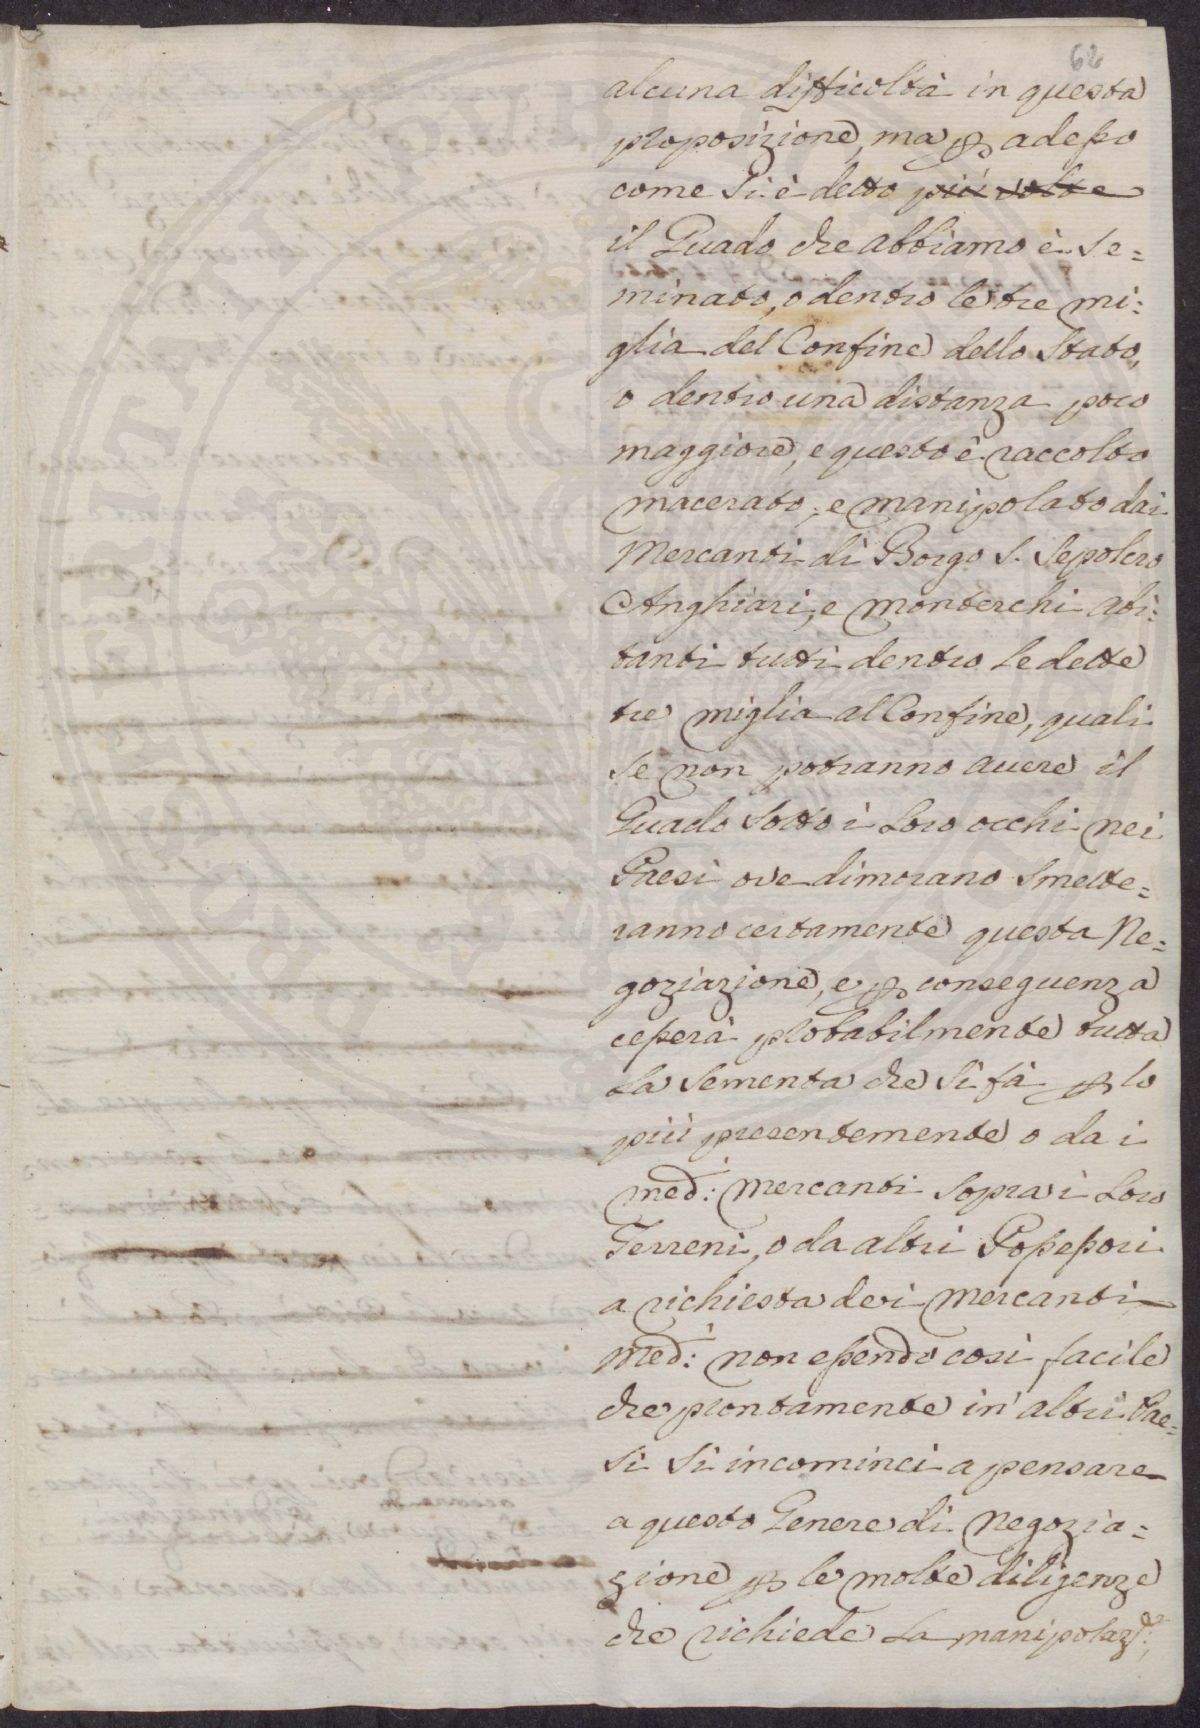 62
alcuna difficoltà in questa
proposizione, ma per adesso
come si è detto più volte
il Guado che abbiamo è se=
minato, o dentro le tre mi:
glia del Confine dello Stato,
o dentro una distanza poco
maggiore, e questo è raccolto
macerato, e manipolato dai
Mercanti di Borgo S. Sepolcro
Anghiari, e Monterchi abi:
tanti tutti dentro le dette
tre miglia al Confine, quali
se non potranno avere il
Guado sotto i loro occhi nei
Paesi ove dimorano smette=
ranno certamente questa Ne=
goziazione, e per conseguenza
cesserà probabilmente tutta
la sementa che si fà per lo
più presentemente o da i
med: Mercanti sopra i loro
Terreni, o da altri Possessori
a richiesta dei Mercanti
med: non essendo così facile
che prontamente in altri Pae=
si si incominci a pensare
a questo Genere di Negozia=
zione per le molte diligenze
che richiede la manipolaz:e